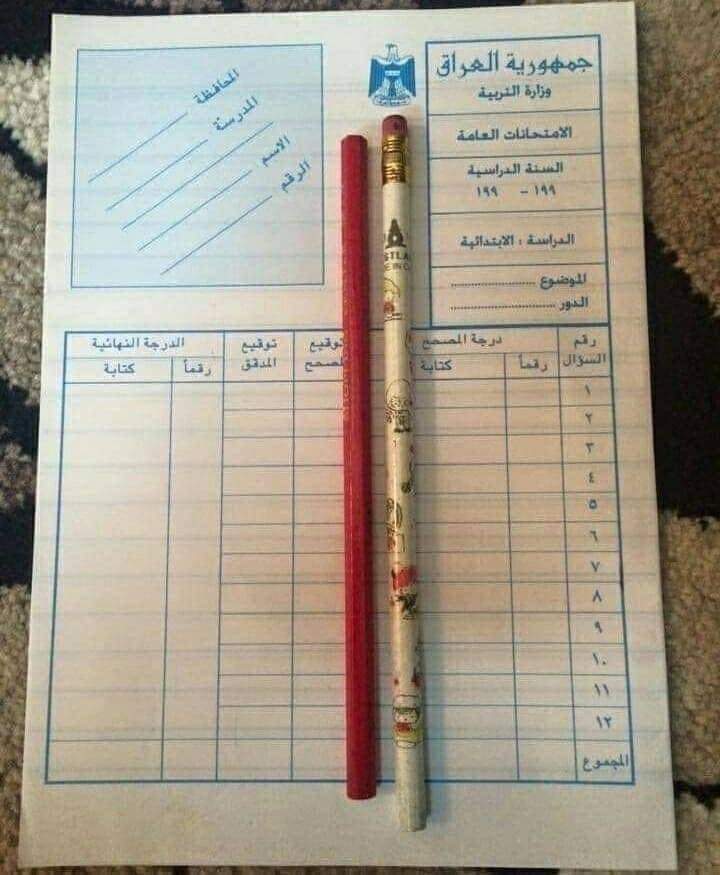 جمهورية العراق
وزارة التربية
الامتحانات العامة
السنة الدراسية
١٩٩ - ١٩٩
الدراسة : الابتدائية
الموضوع ....................
الدور ....................
المحافظة
المدرسة
الاسم
الرقم
رقم السؤال
درجة المصحح
رقماً
كتابة
توقيع
توقيع المدقق
الدرجة النهائية
رقماً
كتابة
١
٢
٣
٤
٥
٦
٧
٨
٩
١٠
١١
١٢
المجموع